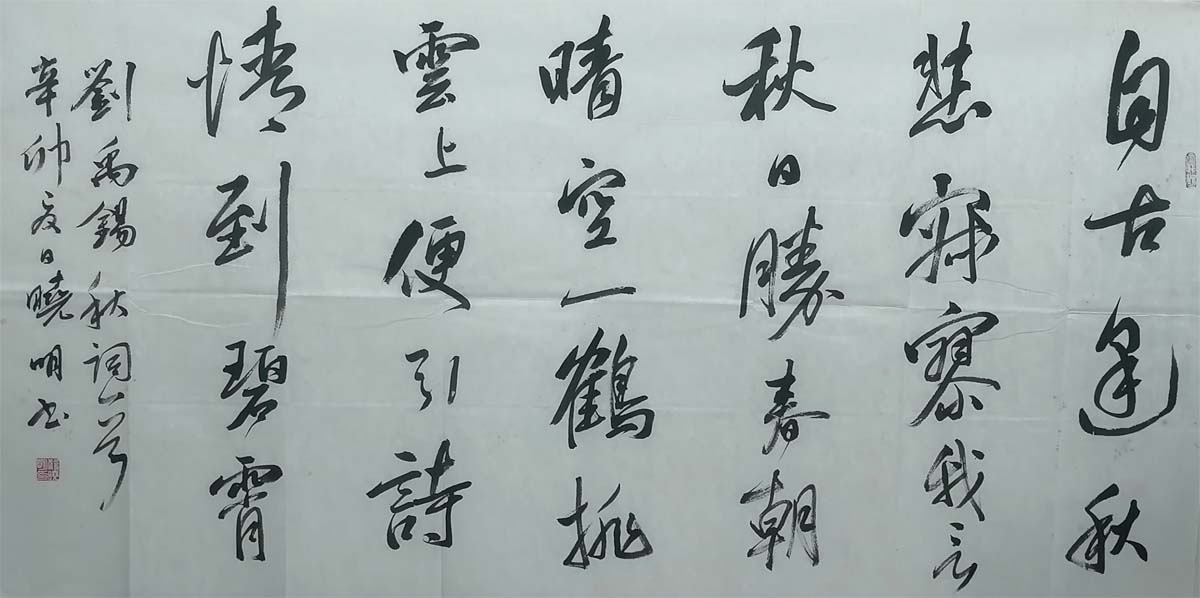 自古逢秋
悲寂寥我言
秋日勝春朝
晴空一鶴排
雲上便引詩
情到碧霄
劉禹錫秋詞一首
辛卯夏日曉明书